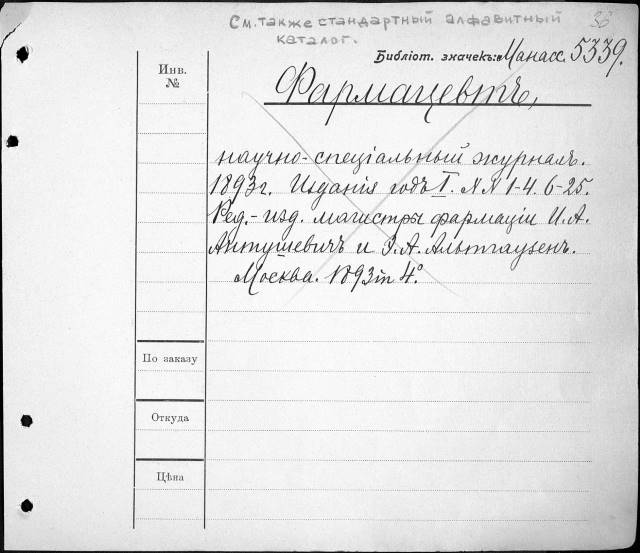 См. также стандартный алфавитный 36
каталог.
Библіот. значекъ: Манасс. 5339.
Инв.
№
Фармацевтъ,
научно-спеціальный журналъ.
1893 г. Изданія годъ I. NN 1-4. 6-25.
Ред.-изд. магистры фармаціи И. А.
Антушевичъ и Э. А. Альтгаузенъ.
Москва. 1893 in 4°
По заказу
Откуда
Цѣна